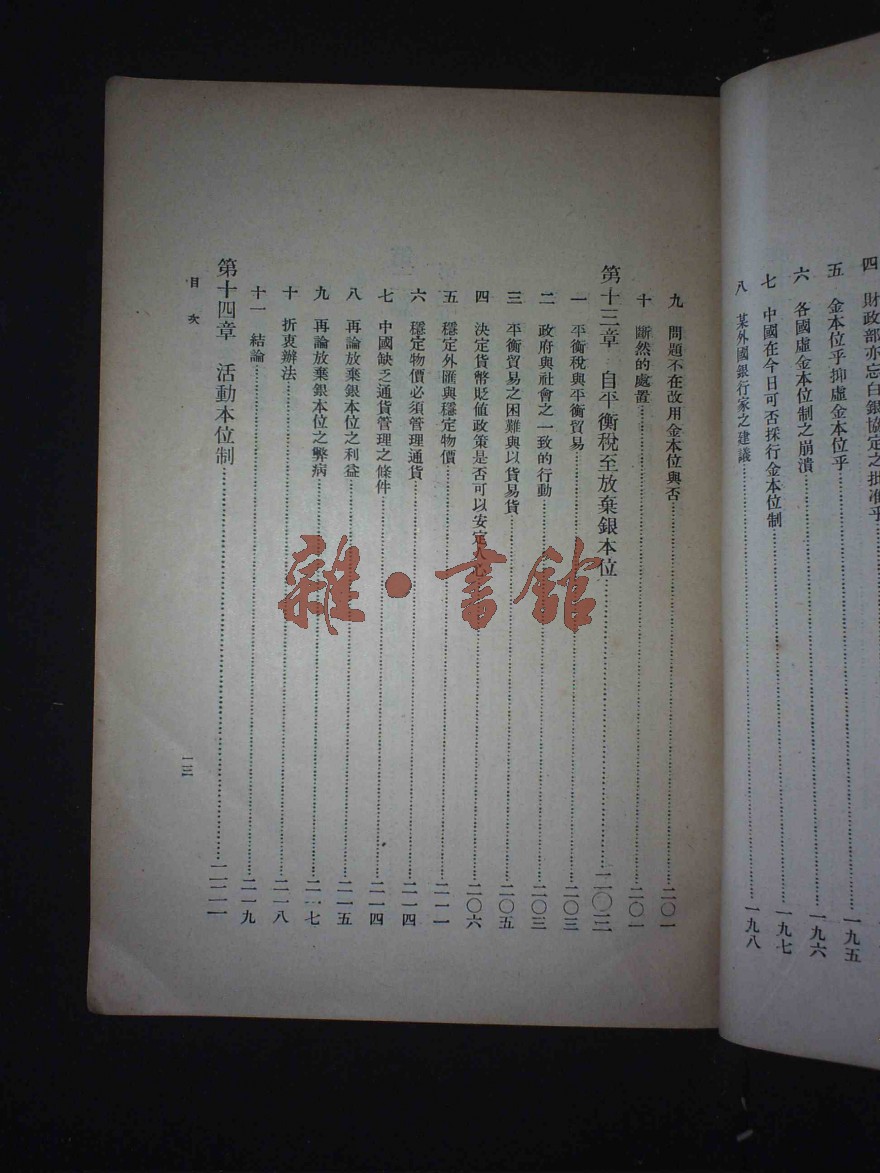 四 財政部亦忘白銀協定之批准乎
五 金本位乎抑虛金本位乎……一九五
六 各國虛金本位制之崩潰……一九六
七 中國在今日可否採行金本位制……一九七
八 某外國銀行家之建議……一九八
九 問題不在改用金本位與否……二〇一
十 斷然的處置……二〇一
第十三章 自平衡稅至放棄銀本位……二〇三
一 平衡稅與平衡貿易……二〇三
二 政府與社會之一致的行動……二〇三
三 平衡貿易之困難與以貨易貨……二〇五
四 決定貨幣貶値政策是否可以安定人心……二〇六
五 穩定外匯與穩定物價……二一一
六 穩定物價必須管理通貨……二一四
七 中國缺乏通貨管理之條件……二一四
八 再論放棄銀本位之利益……二一五
九 再論放棄銀本位之弊病……二一七
十 折衷辦法……二一八
十一 結論……二一九
第十四章 活動本位制……二二一
目次
一三
雜·書館